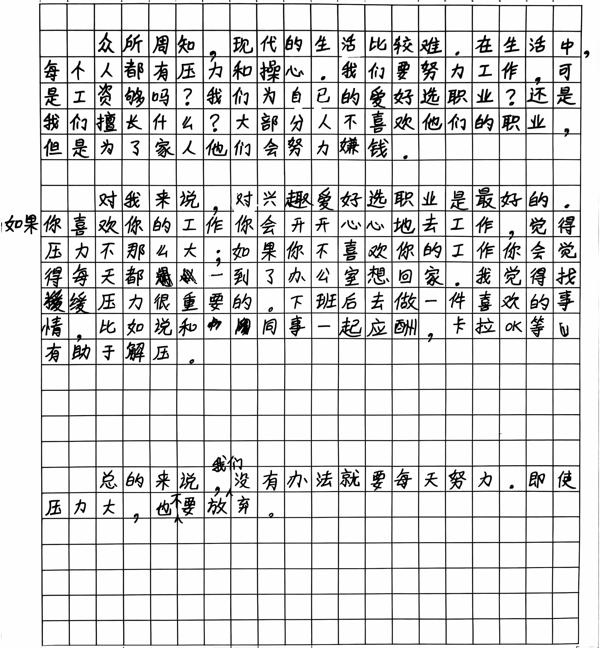 众所周知，现代的生活比较难．在生活中，
每个人都有压力和操心．我们要努力工作，可
是工资够吗？我们为自己的爱好选职业？还是
我们擅长什么？大部分人不喜欢他们的职业，
但是为了家人他们会努力嫌钱．
对我来说，对兴趣爱好选职业是最好的．
如果你喜欢你的工作你会开开心心地去工作，觉得
压力不那么大；如果你不喜欢你的工作你会觉
得每天都一到了办公室想回家．我觉得找
缓压力很重要的．下班后去做一件喜欢的事
情，比如说和同事一起应酬，卡拉OK等
有助于解压。
总的来说，我们没有办法就要每天努力．即使
压力大，也不要放弃。